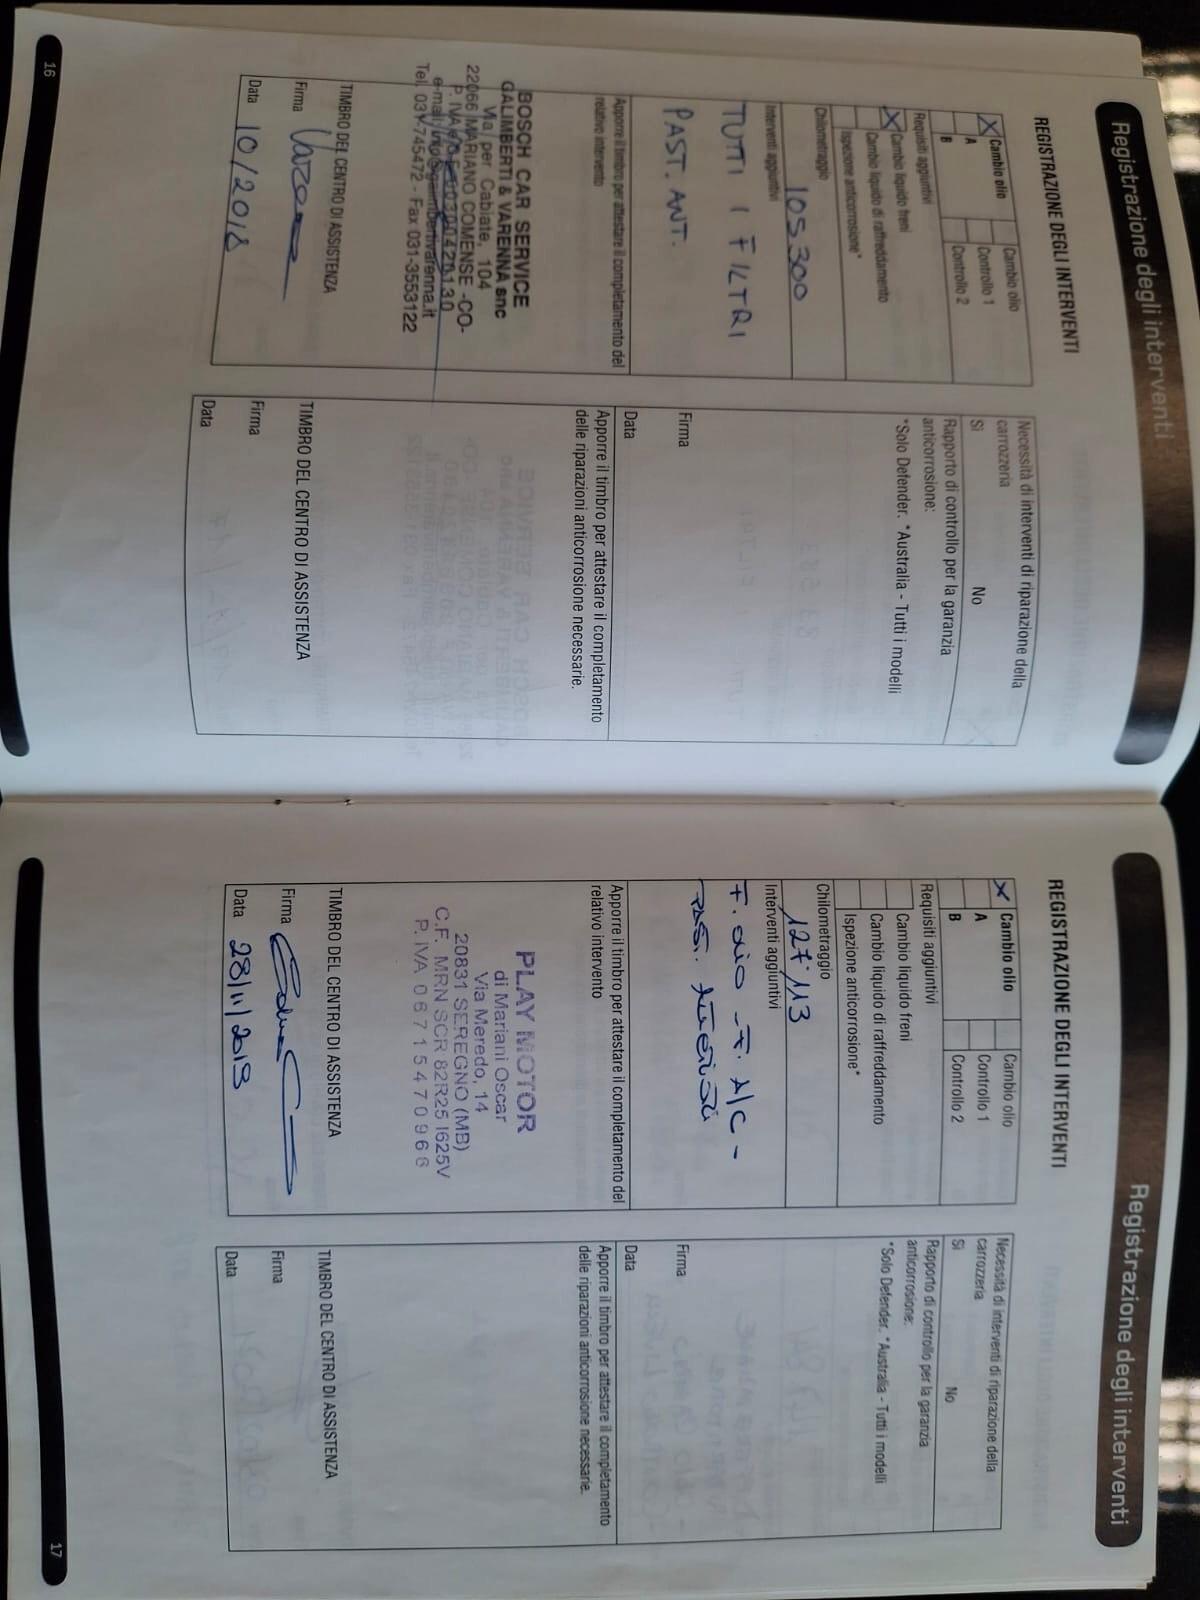 Registrazione degli interventi
REGISTRAZIONE DEGLI INTERVENTI
X Cambio olio
A
B
Cambio olio
Controllo 1
Controllo 2
Requisiti aggiuntivi
X Cambio liquido freni
Cambio liquido di raffreddamento
Ispezione anticorrosione*
Chilometraggio
105300
Interventi aggiuntivi
TUTTI I FILTRI
PAST. ANT.
Apporre il timbro per attestare il completamento del
relativo intervento
BOSCH CAR SERVICE
GALIMBERTI & VARENNA snc
Via per Cabiate, 104
22066 MARIANO COMENSE -CO-
P. IVA
e-mail:
Tel. 031-745472 - Fax 031-3553122
TIMBRO DEL CENTRO DI ASSISTENZA
Firma
Data 10/2018
Necessità di interventi di riparazione della
carrozzeria
Sì No
Rapporto di controllo per la garanzia
anticorrosione:
*Solo Defender. *Australia - Tutti i modelli
Firma
Data
Apporre il timbro per attestare il completamento
delle riparazioni anticorrosione necessarie.
TIMBRO DEL CENTRO DI ASSISTENZA
Firma
Data
16
Registrazione degli interventi
REGISTRAZIONE DEGLI INTERVENTI
X Cambio olio
A
B
Cambio olio
Controllo 1
Controllo 2
Requisiti aggiuntivi
Cambio liquido freni
Cambio liquido di raffreddamento
Ispezione anticorrosione*
Chilometraggio
127.113
Interventi aggiuntivi
F. OLIO - F. A/C -
PAST.
Apporre il timbro per attestare il completamento del
relativo intervento
PLAY MOTOR
di Mariani Oscar
Via Meredo, 14
20831 SEREGNO (MB)
C.F. MRN SCR 82R25 I625V
P. IVA 0 6 7 1 5 4 7 0 9 6 6
TIMBRO DEL CENTRO DI ASSISTENZA
Firma
Data 28/11/2019
Necessità di interventi di riparazione della
carrozzeria
Sì No
Rapporto di controllo per la garanzia
anticorrosione:
*Solo Defender. *Australia - Tutti i modelli
Firma
Data
Apporre il timbro per attestare il completamento
delle riparazioni anticorrosione necessarie.
TIMBRO DEL CENTRO DI ASSISTENZA
Firma
Data
17